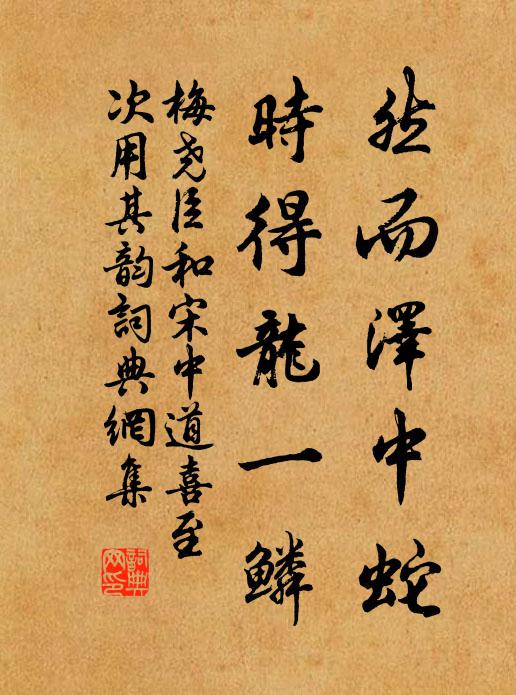 然而澤中蛇
時得龍一鱗
梅尧臣和宋中道喜至
次用其韵詞典網集
詞典網印